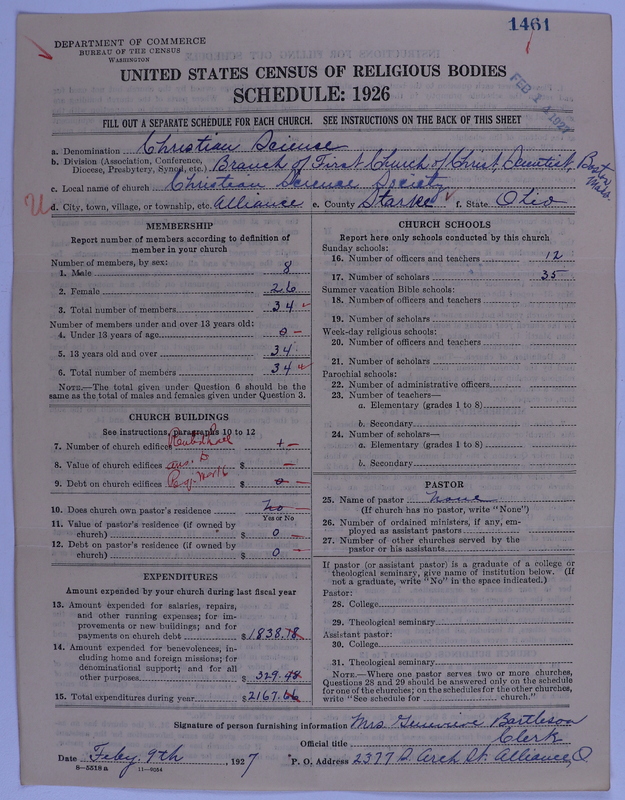 1461
DEPARTMENT OF COMMERCE
BUREAU OF THE CENSUS
WASHINGTON
UNITED STATES CENSUS OF RELIGIOUS BODIES
SCHEDULE: 1926
FEB 14 1927
FILL OUT A SEPARATE SCHEDULE FOR EACH CHURCH. SEE INSTRUCTIONS ON THE BACK OF THIS SHEET
a. Denomination Christian Science
b. Division (Association, Conference, Diocese, Presbytery, Synod, etc.) Branch of First Church of Christ, Scientist, Boston Mass.
c. Local name of church Christian Science Society
U d. City, town, village, or township, etc. Alliance e. County Starke f. State Ohio
MEMBERSHIP
Report number of members according to definition of
member in your church
Number of members, by sex:
1. Male 8
2. Female 26
3. Total number of members 34
Number of members under and over 13 years old:
4. Under 13 years of age 0
5. 13 years old and over 34
6. Total number of members 34
NOTE.—The total given under Question 6 should be the
same as the total of males and females given under Question 3.
CHURCH BUILDINGS
See instructions, paragraphs 10 to 12
7. Number of church edifices
8. Value of church edifices $ —
9. Debt on church edifices $ 0
10. Does church own pastor's residence No
Yes or No
11. Value of pastor's residence (if owned by
church) $ 0
12. Debt on pastor's residence (if owned by
church) $ 0
EXPENDITURES
Amount expended by your church during last fiscal year
13. Amount expended for salaries, repairs,
and other running expenses; for im-
provements or new buildings; and for
payments on church debt $ 1838.78
14. Amount expended for benevolences, in-
cluding home and foreign missions; for
denominational support; and for all
other purposes $ 329.48
15. Total expenditures during year $ 2167.66
CHURCH SCHOOLS
Report here only schools conducted by this church
Sunday schools:
16. Number of officers and teachers 12
17. Number of scholars 35
Summer vacation Bible schools:
18. Number of officers and teachers
19. Number of scholars
Week-day religious schools:
20. Number of officers and teachers
21. Number of scholars
Parochial schools:
22. Number of administrative officers
23. Number of teachers—
a. Elementary (grades 1 to 8)
b. Secondary
24. Number of scholars—
a. Elementary (grades 1 to 8)
b. Secondary
PASTOR
25. Name of pastor None
(If church has no pastor, write "None")
26. Number of ordained ministers, if any, em-
ployed as assistant pastors
27. Number of other churches served by the
pastor or his assistants
If pastor (or assistant pastor) is a graduate of a college or
theological seminary, give name of institution below. (If
not a graduate, write "No" in the space indicated.)
Pastor:
28. College
29. Theological seminary
Assistant pastor:
30. College
31. Theological seminary
NOTE.—Where one pastor serves two or more churches,
Questions 28 and 29 should be answered only on the schedule
for one of the churches; on the schedules for the other churches,
write "See schedule for church."
Signature of person furnishing information Mrs. Genevieve Bartleson
Official title Clerk
Date Feby. 9th, 1927 P. O. Address 2377 S. Arch St. Alliance, O
8—5518 a 11—9054